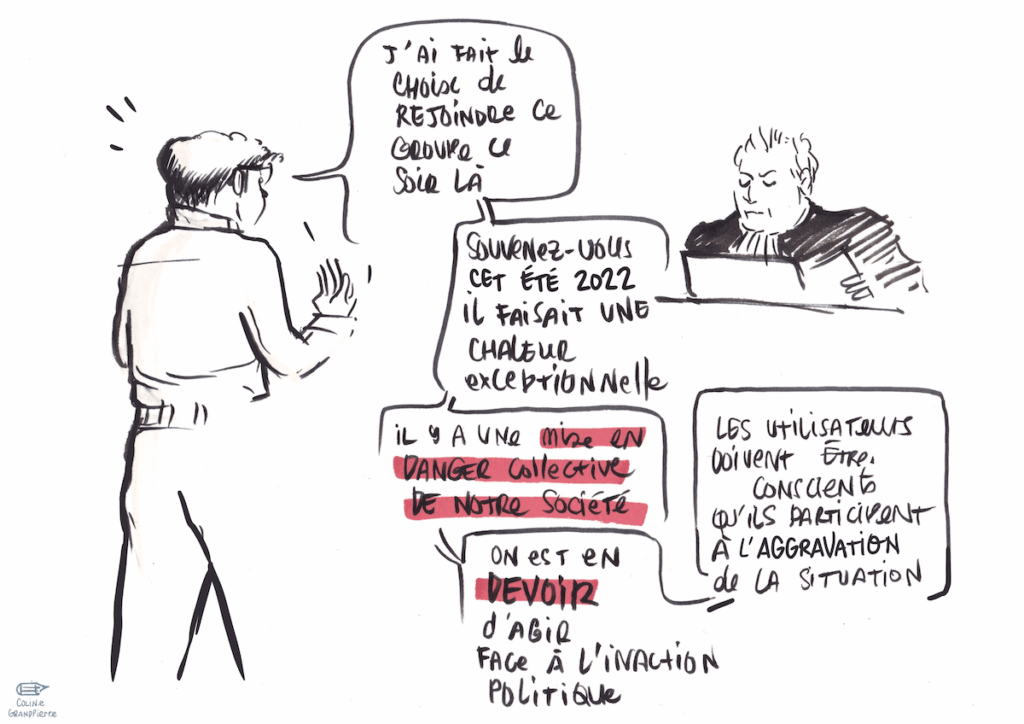 J'AI FAIT le
CHOIX de
REJOINDRE CE
GROUPE CE
SOIR LÀ
SOUVENEZ-VOUS
CET ÉTÉ 2022
IL FAISAIT UNE
CHALEUR
exceptionnelle
IL Y A UNE mise en
DANGER Collective
DE NOTRE SOCIÉTÉ
ON EST EN
DEVOIR
d'AGIR
FACE À L'INACTION
POLITIQUE
LES UTILISATEURS
DOIVENT ÊTRE
CONSCIENTS
QU'ILS PARTICIPENT
À L'AGGRAVATION
de LA SITUATION
COLINE
GRANDPIERRE